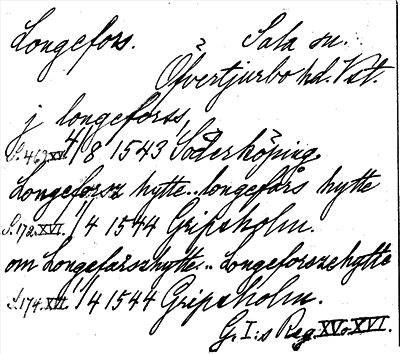 Longefors. ? Sala sn.
Öfvertjurbo hd. Vst.
j longeforss,
S. 462. XV. 4/8 1543 Söderköping.
Longeforsz hytte.. longefårs hytte
S. 172. XVI. 1/4 1544 Gripsholm.
om Longefårszhytte.. Longeforszehytte
S. 174. XVI. 1/4 1544 Gripsholm.
G. I:s Reg. XV o XVI.